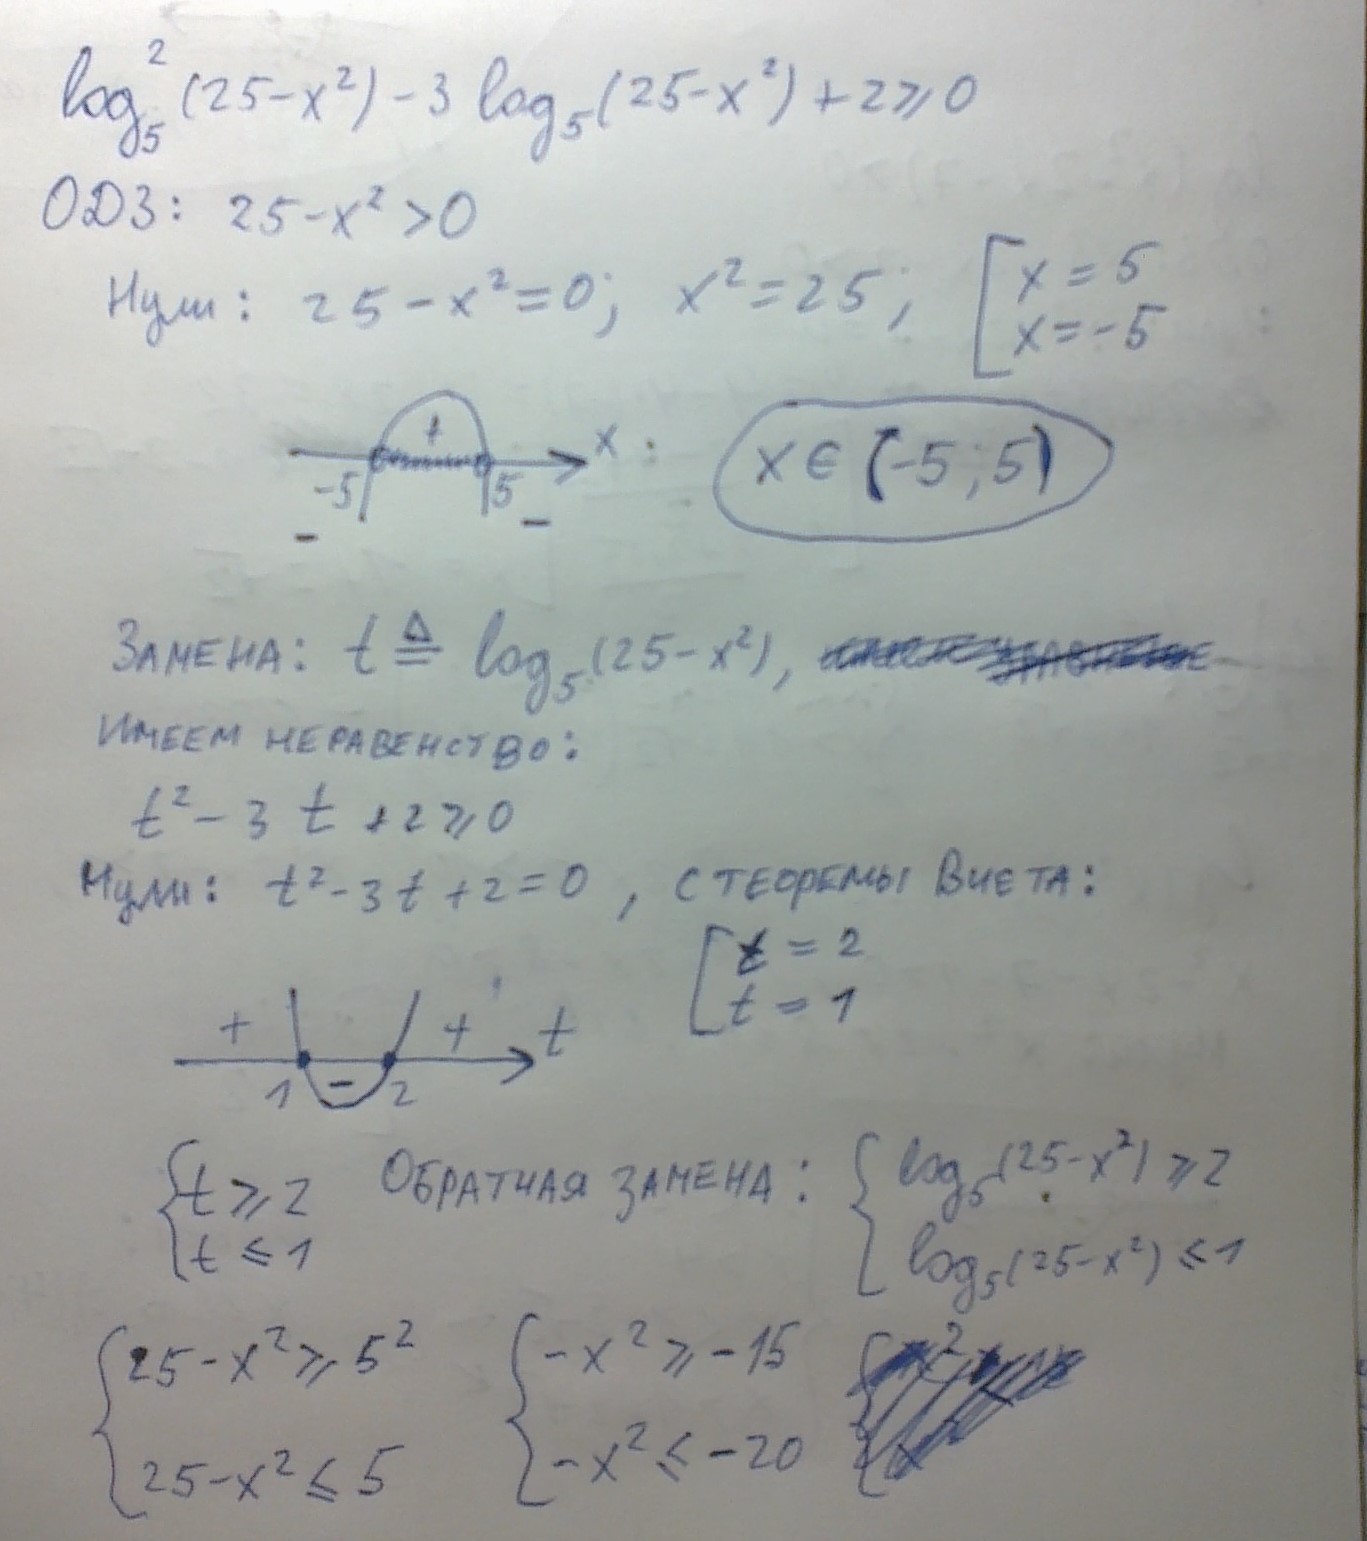 log₅²(25-x²)-3 log₅(25-x²)+2⩾0
ОДЗ: 25-x²>0
Нули: 25-x²=0; x²=25; [x=5
x=-5
+
-5 5 x : x∈(-5;5)
- -
ЗАМЕНА: t ≜ log₅(25-x²),
ИМЕЕМ НЕРАВЕНСТВО:
t²-3t+2⩾0
Нули: t²-3t+2=0, С ТЕОРЕМЫ ВИЕТА:
[t=2
t=1
+ - + t
1 2
{t⩾2 ОБРАТНАЯ ЗАМЕНА: {log₅(25-x²)⩾2
t⩽1 log₅(25-x²)⩽1
{25-x²⩾5² {-x²⩾-15
25-x²⩽5 -x²⩽-20